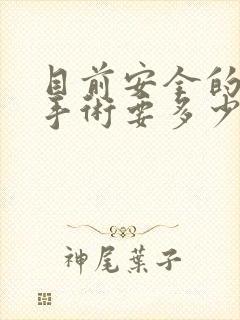 目前安全的
手術要多少
神尾葉子